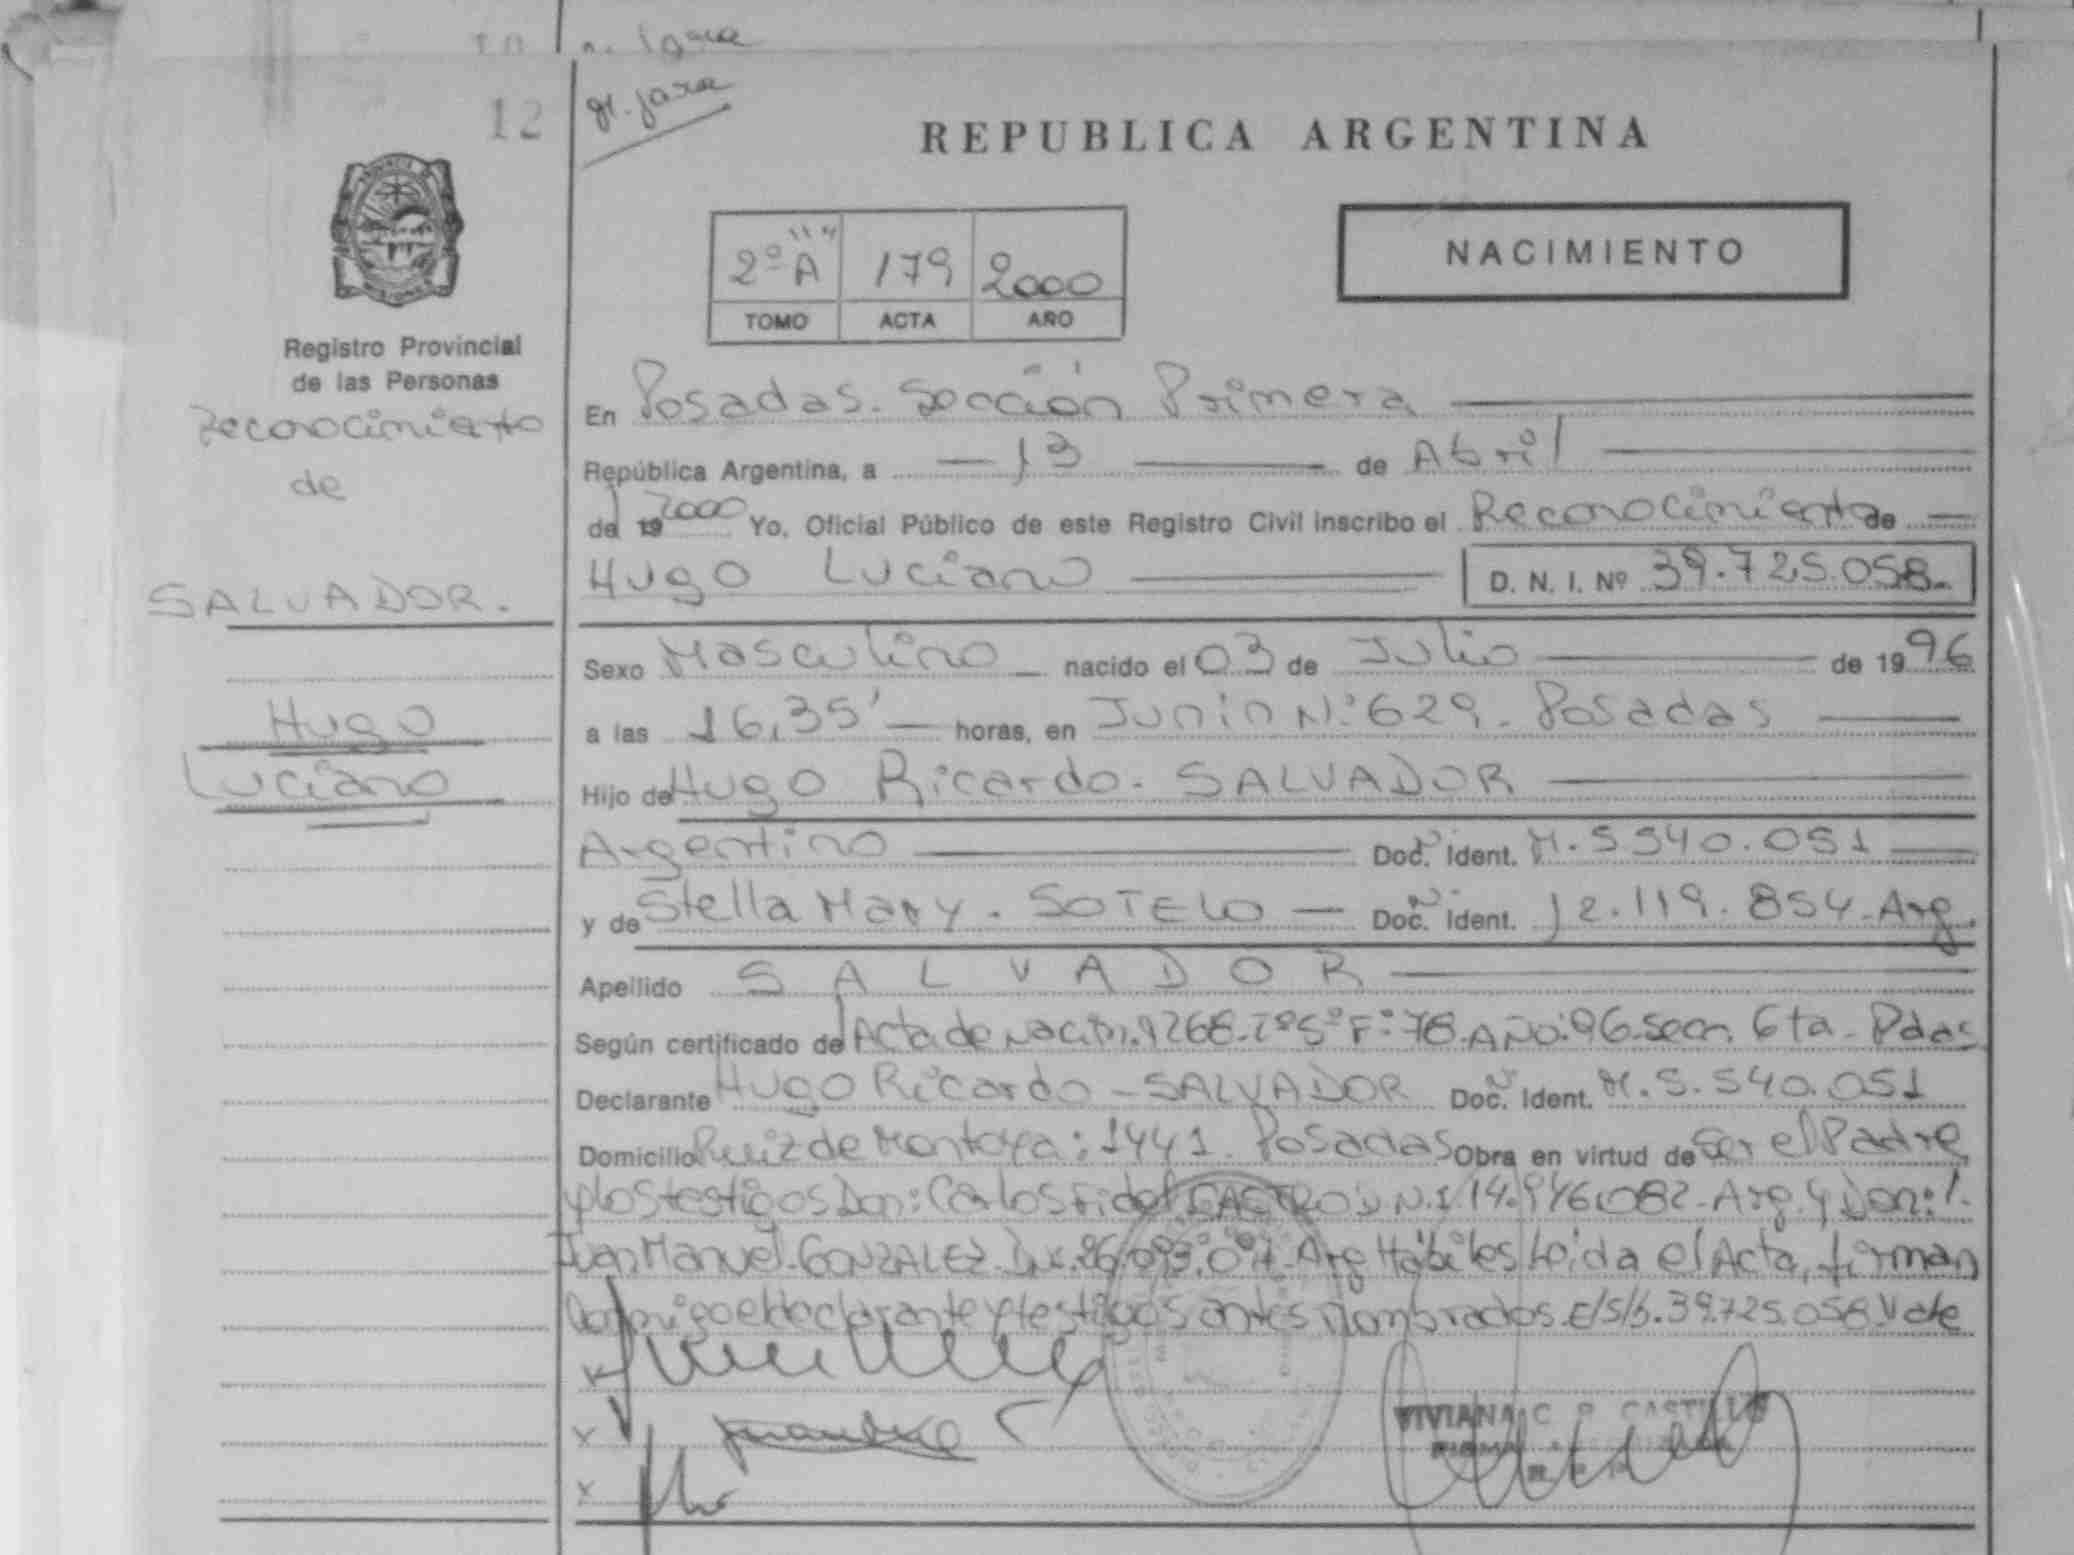 12
gr. Jara
REPUBLICA ARGENTINA
NACIMIENTO
2º "A" 179 2000
TOMO ACTA AÑO
Registro Provincial
de las Personas
Reconocimiento
de
SALVADOR.
Hugo
Luciano
En Posadas. Sección Primera
República Argentina, a 13 de Abril
del 19 2000 Yo, Oficial Público de este Registro Civil inscribo el Reconocimiento de
Hugo Luciano D. N. I. Nº 39.725.058.
Sexo Masculino nacido el 03 de Julio de 1996
a las 16,35' horas, en Junin Nº 629. Posadas
Hijo de Hugo Ricardo. SALVADOR
Argentino Doc. Ident. M. 5540.051
y de Stella Mary. SOTELO Doc. Ident. 12.119.854. Arg.
Apellido SALVADOR
Según certificado del Acta de Nacim. 9268. Tº 5º Fº: 78. AÑO: 96. Secn. 6ta. Pdas
Declarante Hugo Ricardo - SALVADOR Doc. Ident. M. 5.540.051
Domicilio Ruiz de Montoya: 1441. Posadas Obra en virtud de Ser el Padre
y los testigos Don: Carlos Fidel CASTRO D.N.I. 14.946.082. Arg. y Don:
Juan Manuel. GONZALEZ. Arg Hábiles Leida el Acta, firman
conmigo el declarante y testigos antes nombrados. E/S/b. 39.725.058 Vale
x
x
x
VIVIANA C. CASTILLO